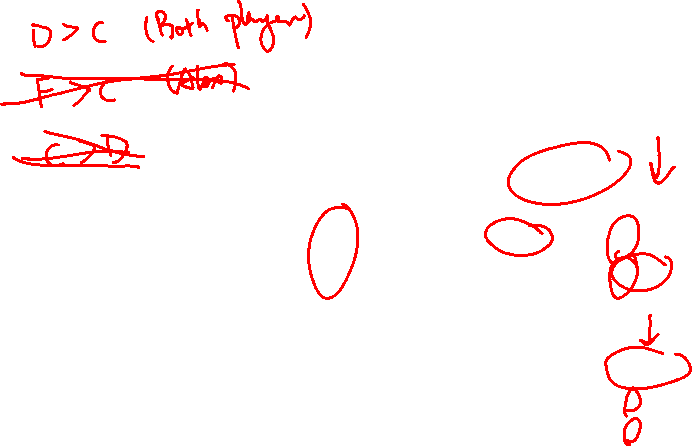 D > C (Both players)
F > C (Alex)
C > D
D